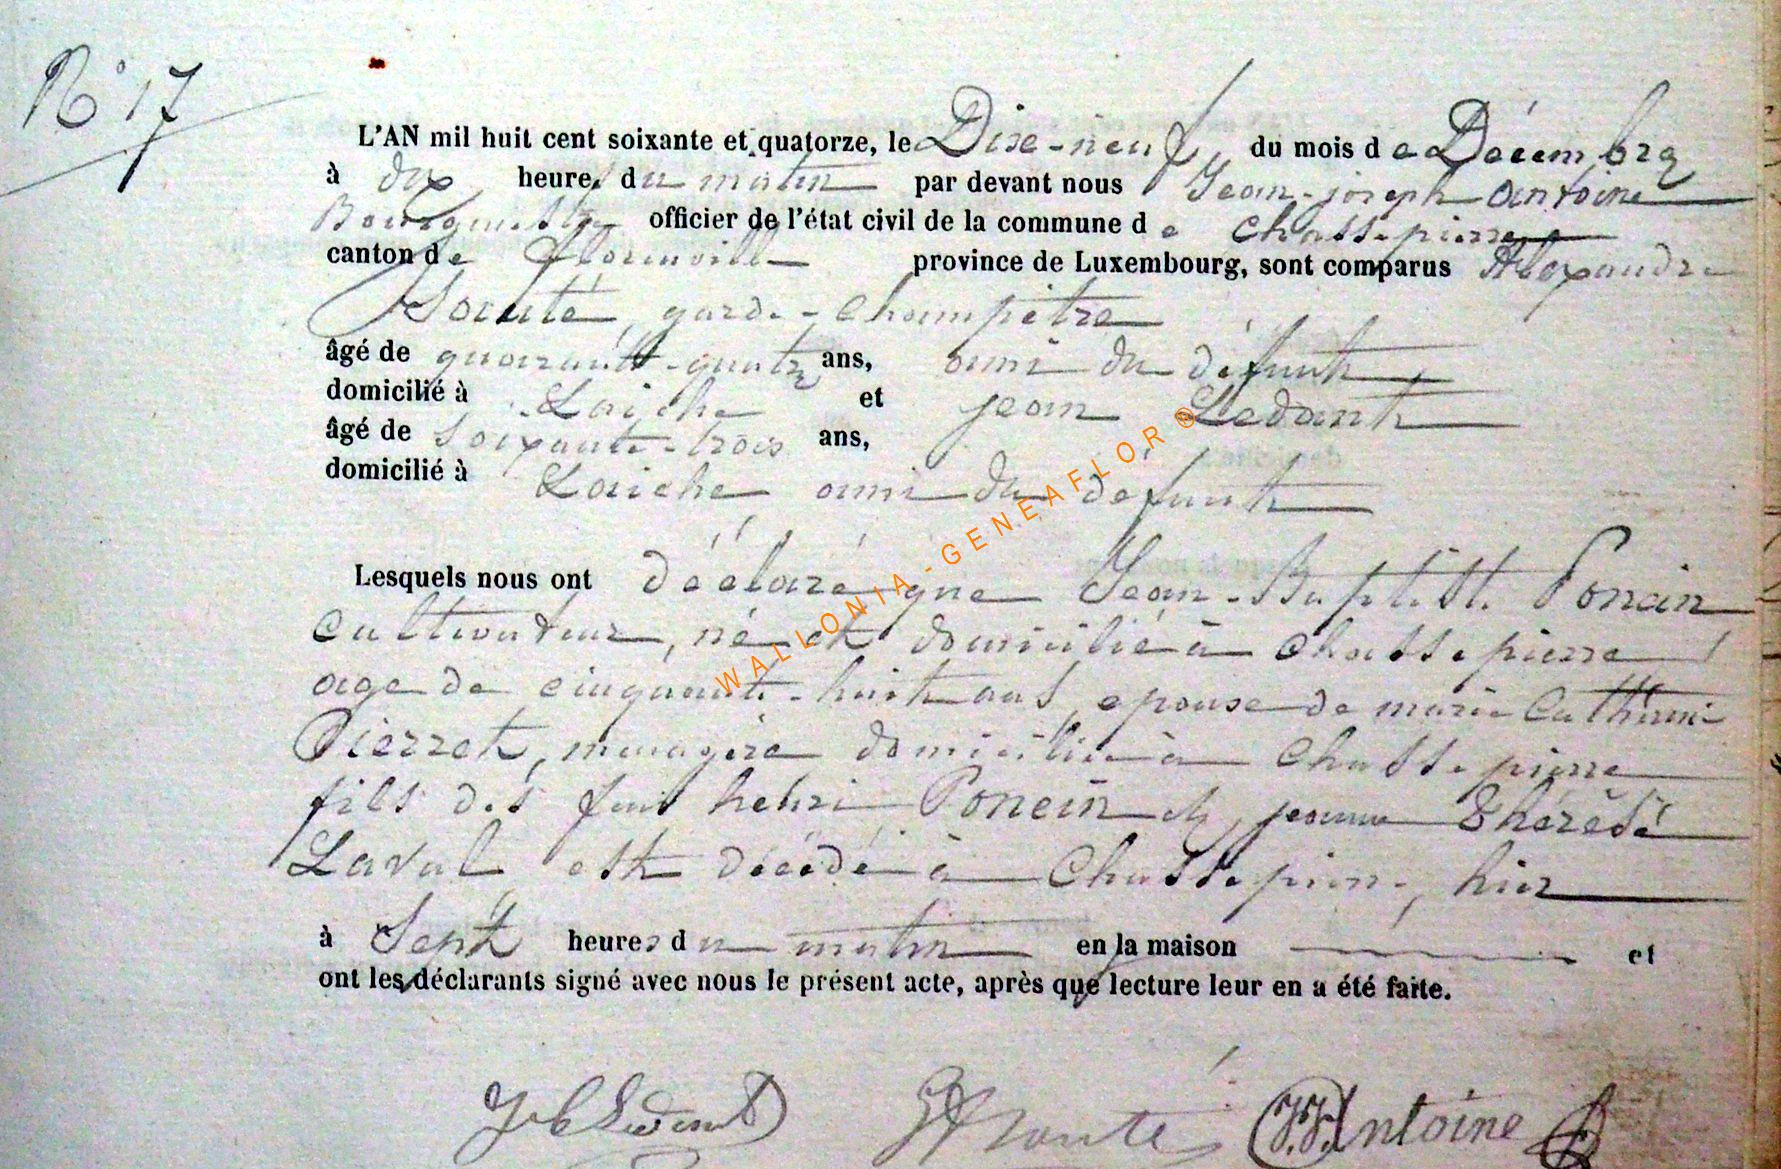 N° 17
L'AN mil huit cent soixante et quatorze, le Dise-neuf du mois de Décembre
à dix heures du matin par devant nous Jean-joseph antoine
Bourgmestre officier de l'état civil de la commune de Chassepierre
canton de Florenville province de Luxembourg, sont comparus Alexandre
garde-Champêtre
âgé de quarante-quatre ans, ami du défunt
domicilié à Laiche et jean Ledant
âgé de soixante-trois ans,
domicilié à Laiche ami du défunt
Lesquels nous ont déclaré que Jean-Baptiste Poncin
Cultivateur, né et domicilié à Chassepierre
age de cinquante-huit ans, epouse de marie Catherine
Pierret, menagère domiciliée à Chassepierre
fils des feus henri Poncin et jeanne Thérèse
Laval est décédé à Chassepierre, hier
à Sept heures du matin en la maison et
ont les déclarants signé avec nous le présent acte, après que lecture leur en a été faite.
Ledant J.J. Antoine
WALLONIA-GENEAFLOR ©